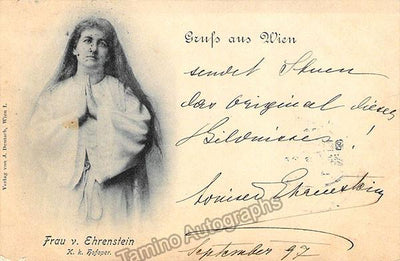 Gruß aus Wien
sendet Ihnen
das Original dieses
Bildnisses!
Louise v. Ehrenstein
September 97
Frau v. Ehrenstein
K. k. Hofoper.
Verlag von J. Deutsch, Wien I.
Tamino Autographs